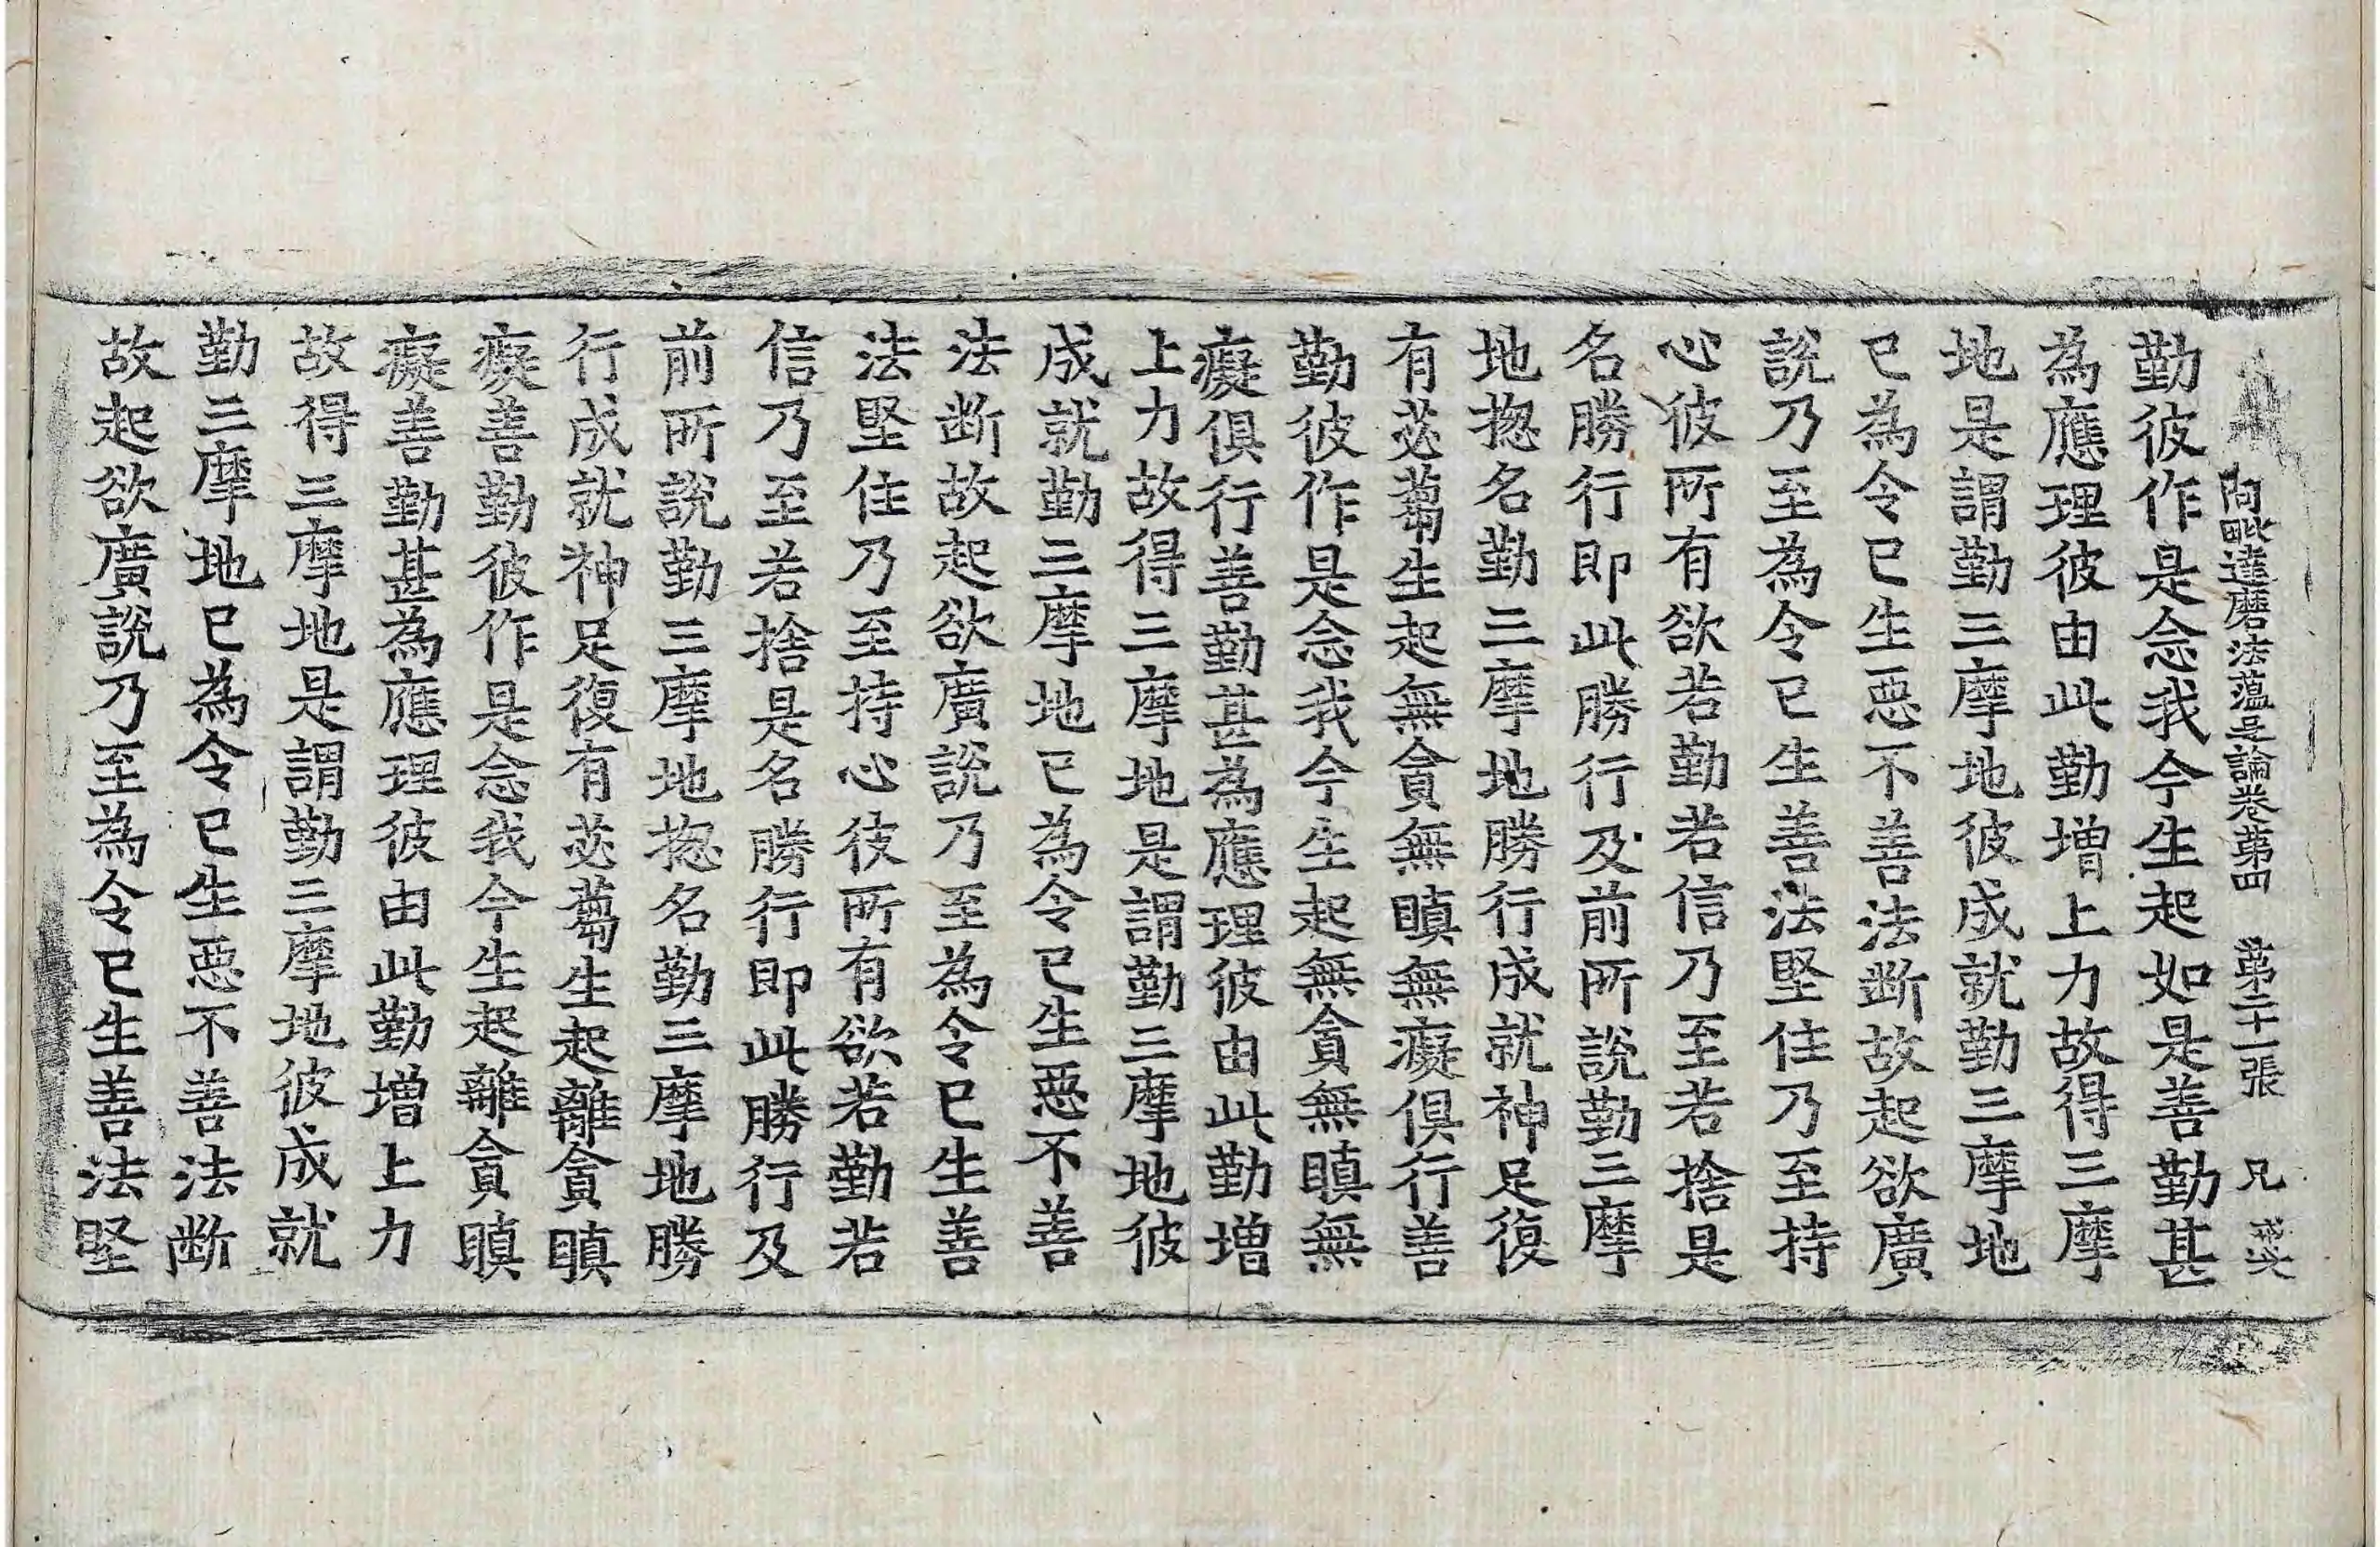 阿毗達磨法蘊足論卷第四 第二十一張 兄
勤彼作是念我今生起如是善勤甚
為應理彼由此勤增上力故得三摩
地是謂勤三摩地彼成就勤三摩地
已為令已生惡不善法斷故起欲廣
說乃至為令已生善法堅住乃至持
心彼所有欲若勤若信乃至若捨是
名勝行即此勝行及前所說勤三摩
地揔名勤三摩地勝行成就神足復
有苾蒭生起無貪無瞋無癡俱行善
勤彼作是念我今生起無貪無瞋無
癡俱行善勤甚為應理彼由此勤增
上力故得三摩地是謂勤三摩地彼
成就勤三摩地已為令已生惡不善
法斷故起欲廣說乃至為令已生善
法堅住乃至持心彼所有欲若勤若
信乃至若捨是名勝行即此勝行及
前所說勤三摩地揔名勤三摩地勝
行成就神足復有苾蒭生起離貪瞋
癡善勤彼作是念我今生起離貪瞋
癡善勤甚為應理彼由此勤增上力
故得三摩地是謂勤三摩地彼成就
勤三摩地已為令已生惡不善法斷
故起欲廣說乃至為令已生善法堅